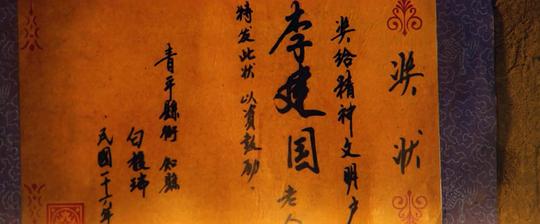 奖状
奖给精神文明户
李建国老人
特发此状 以资鼓励。
青平縣衙 知縣
白椴琋
民國二十六年